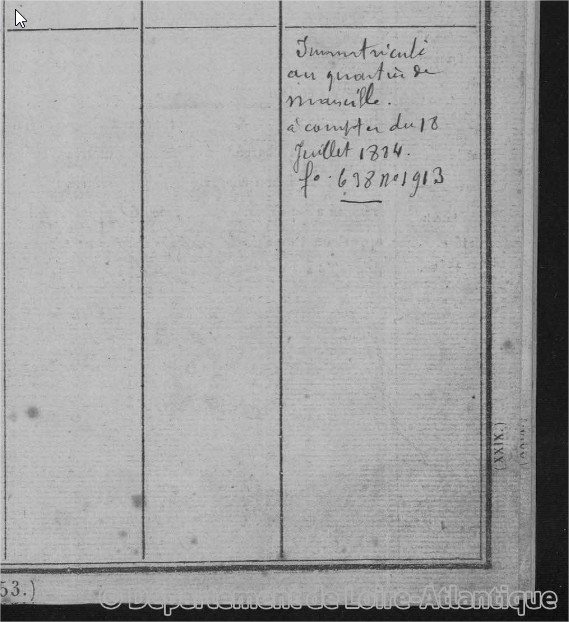 Immatriculé
au quartier de
Marseille.
à compter du 18
Juillet 1884.
fo. 698 no 1913
(XXIX.)
53.)
© Département de Loire-Atlantique